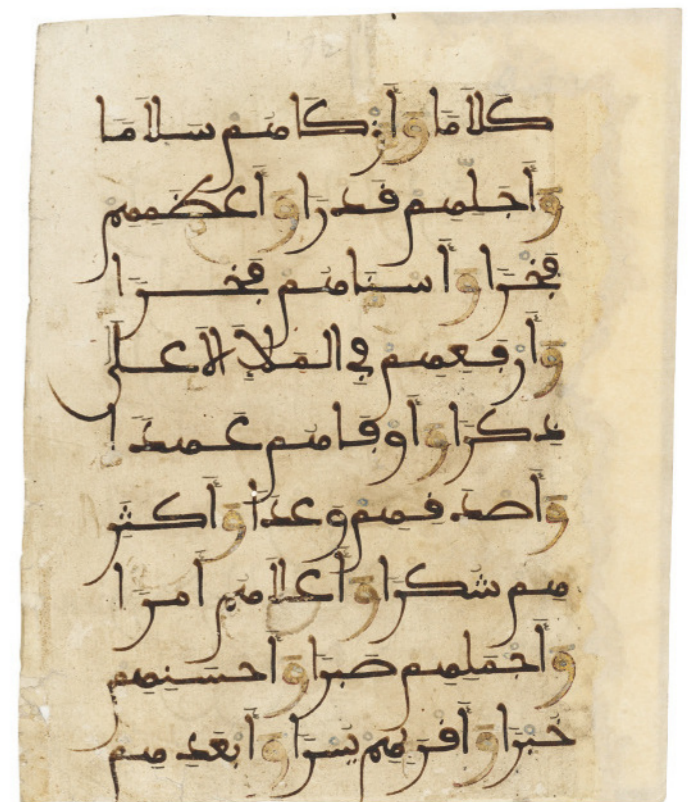 كلاما وأزكاهم سلاما
وأجلهم قدرا وأعظمهم
فخرا وأسناهم فخرا
وأرفعهم في الملإ الأعلى
ذكرا وأوفاهم عهدا
وأصدقهم وعدا وأكثر
هم شكرا وأعلاهم أمرا
وأجملهم صبرا وأحسنهم
خيرا وأقربهم يسرا وأبعدهم